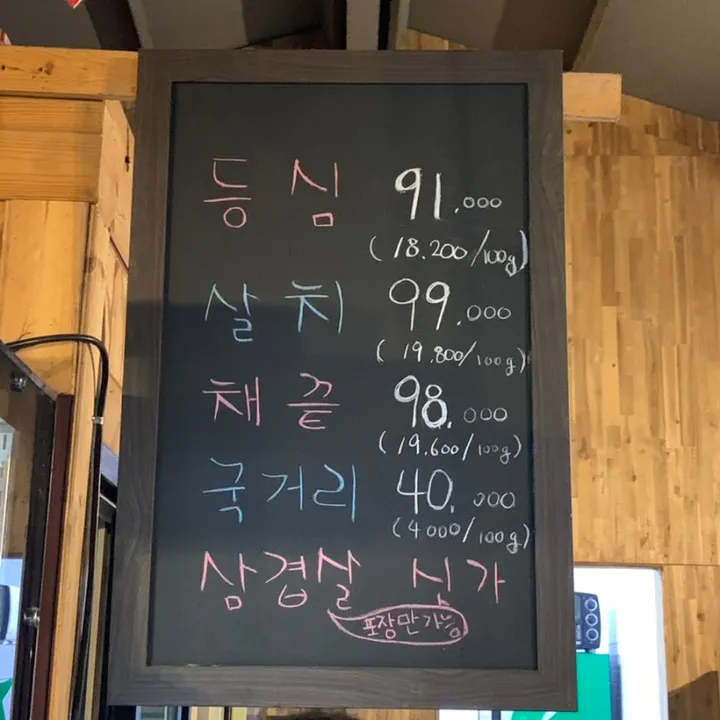 등심 91.000
(18.200/100g)
살치 99.000
(19.800/100g)
채끝 98.000
(19.600/100g)
국거리 40.000
(4000/100g)
삼겹살 싯가
포장만 가능